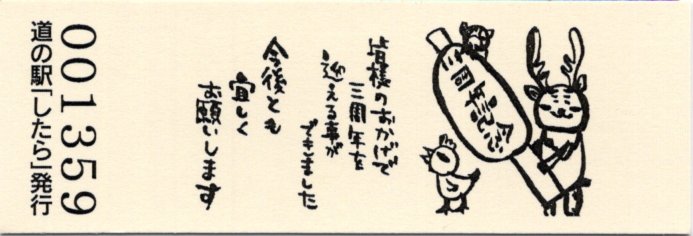 三周年記念
皆様のおかげで
三周年を
迎える事が
できました
今後とも
宜しく
お願いします
001359
道の駅「したら」発行